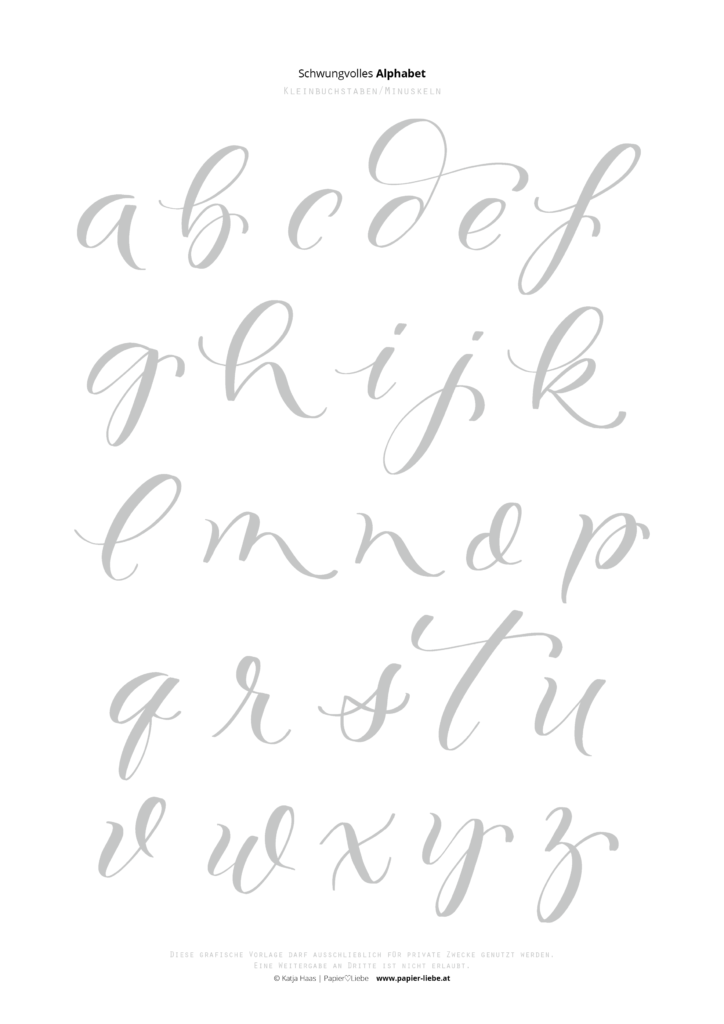 Schwungvolles Alphabet
Kleinbuchstaben/Minuskeln
a b c d e f
g h i j k
l m n o p
q r s t u
v w x y z
Diese grafische Vorlage darf ausschließlich für private Zwecke genutzt werden.
Eine Weitergabe an Dritte ist nicht erlaubt.
© Katja Haas | Papier♡Liebe www.papier-liebe.at